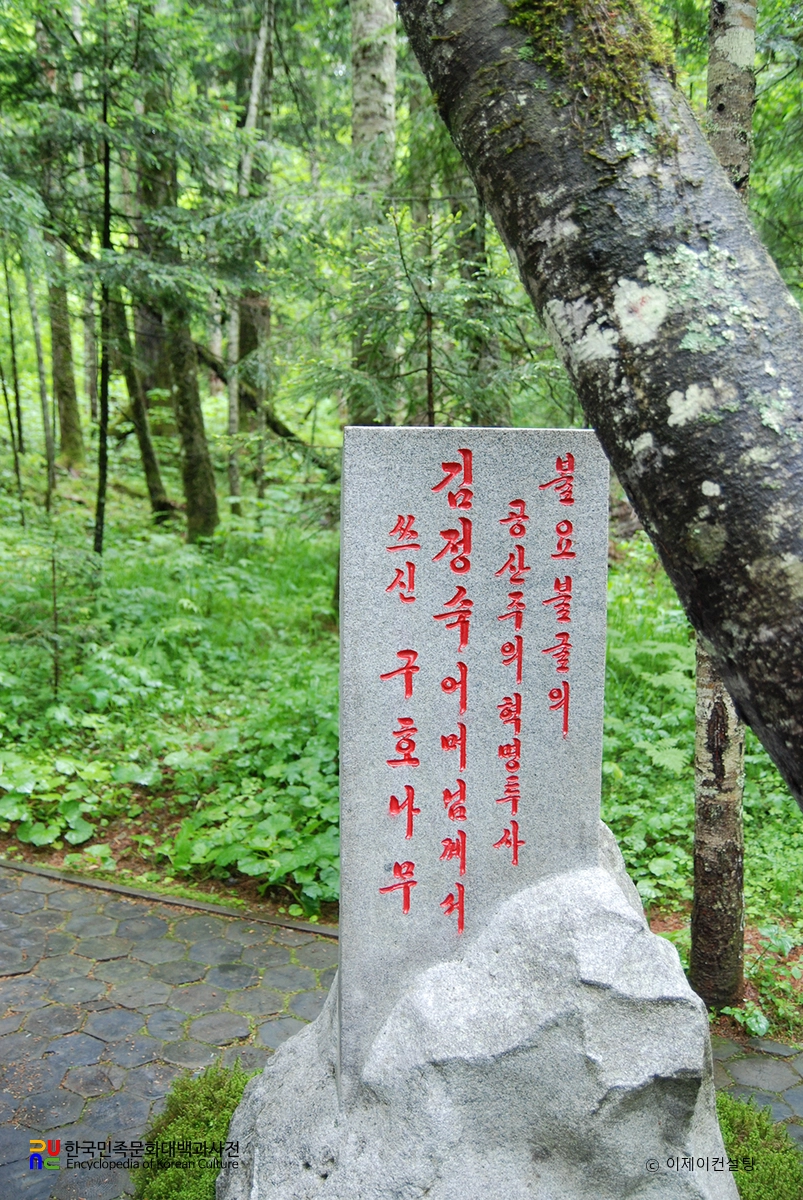 불요불굴의
공산주의혁명투사
김정숙어머님께서
쓰신 구호나무
한국민족문화대백과사전
Encyclopedia of Korean Culture
© 이제이컨설팅